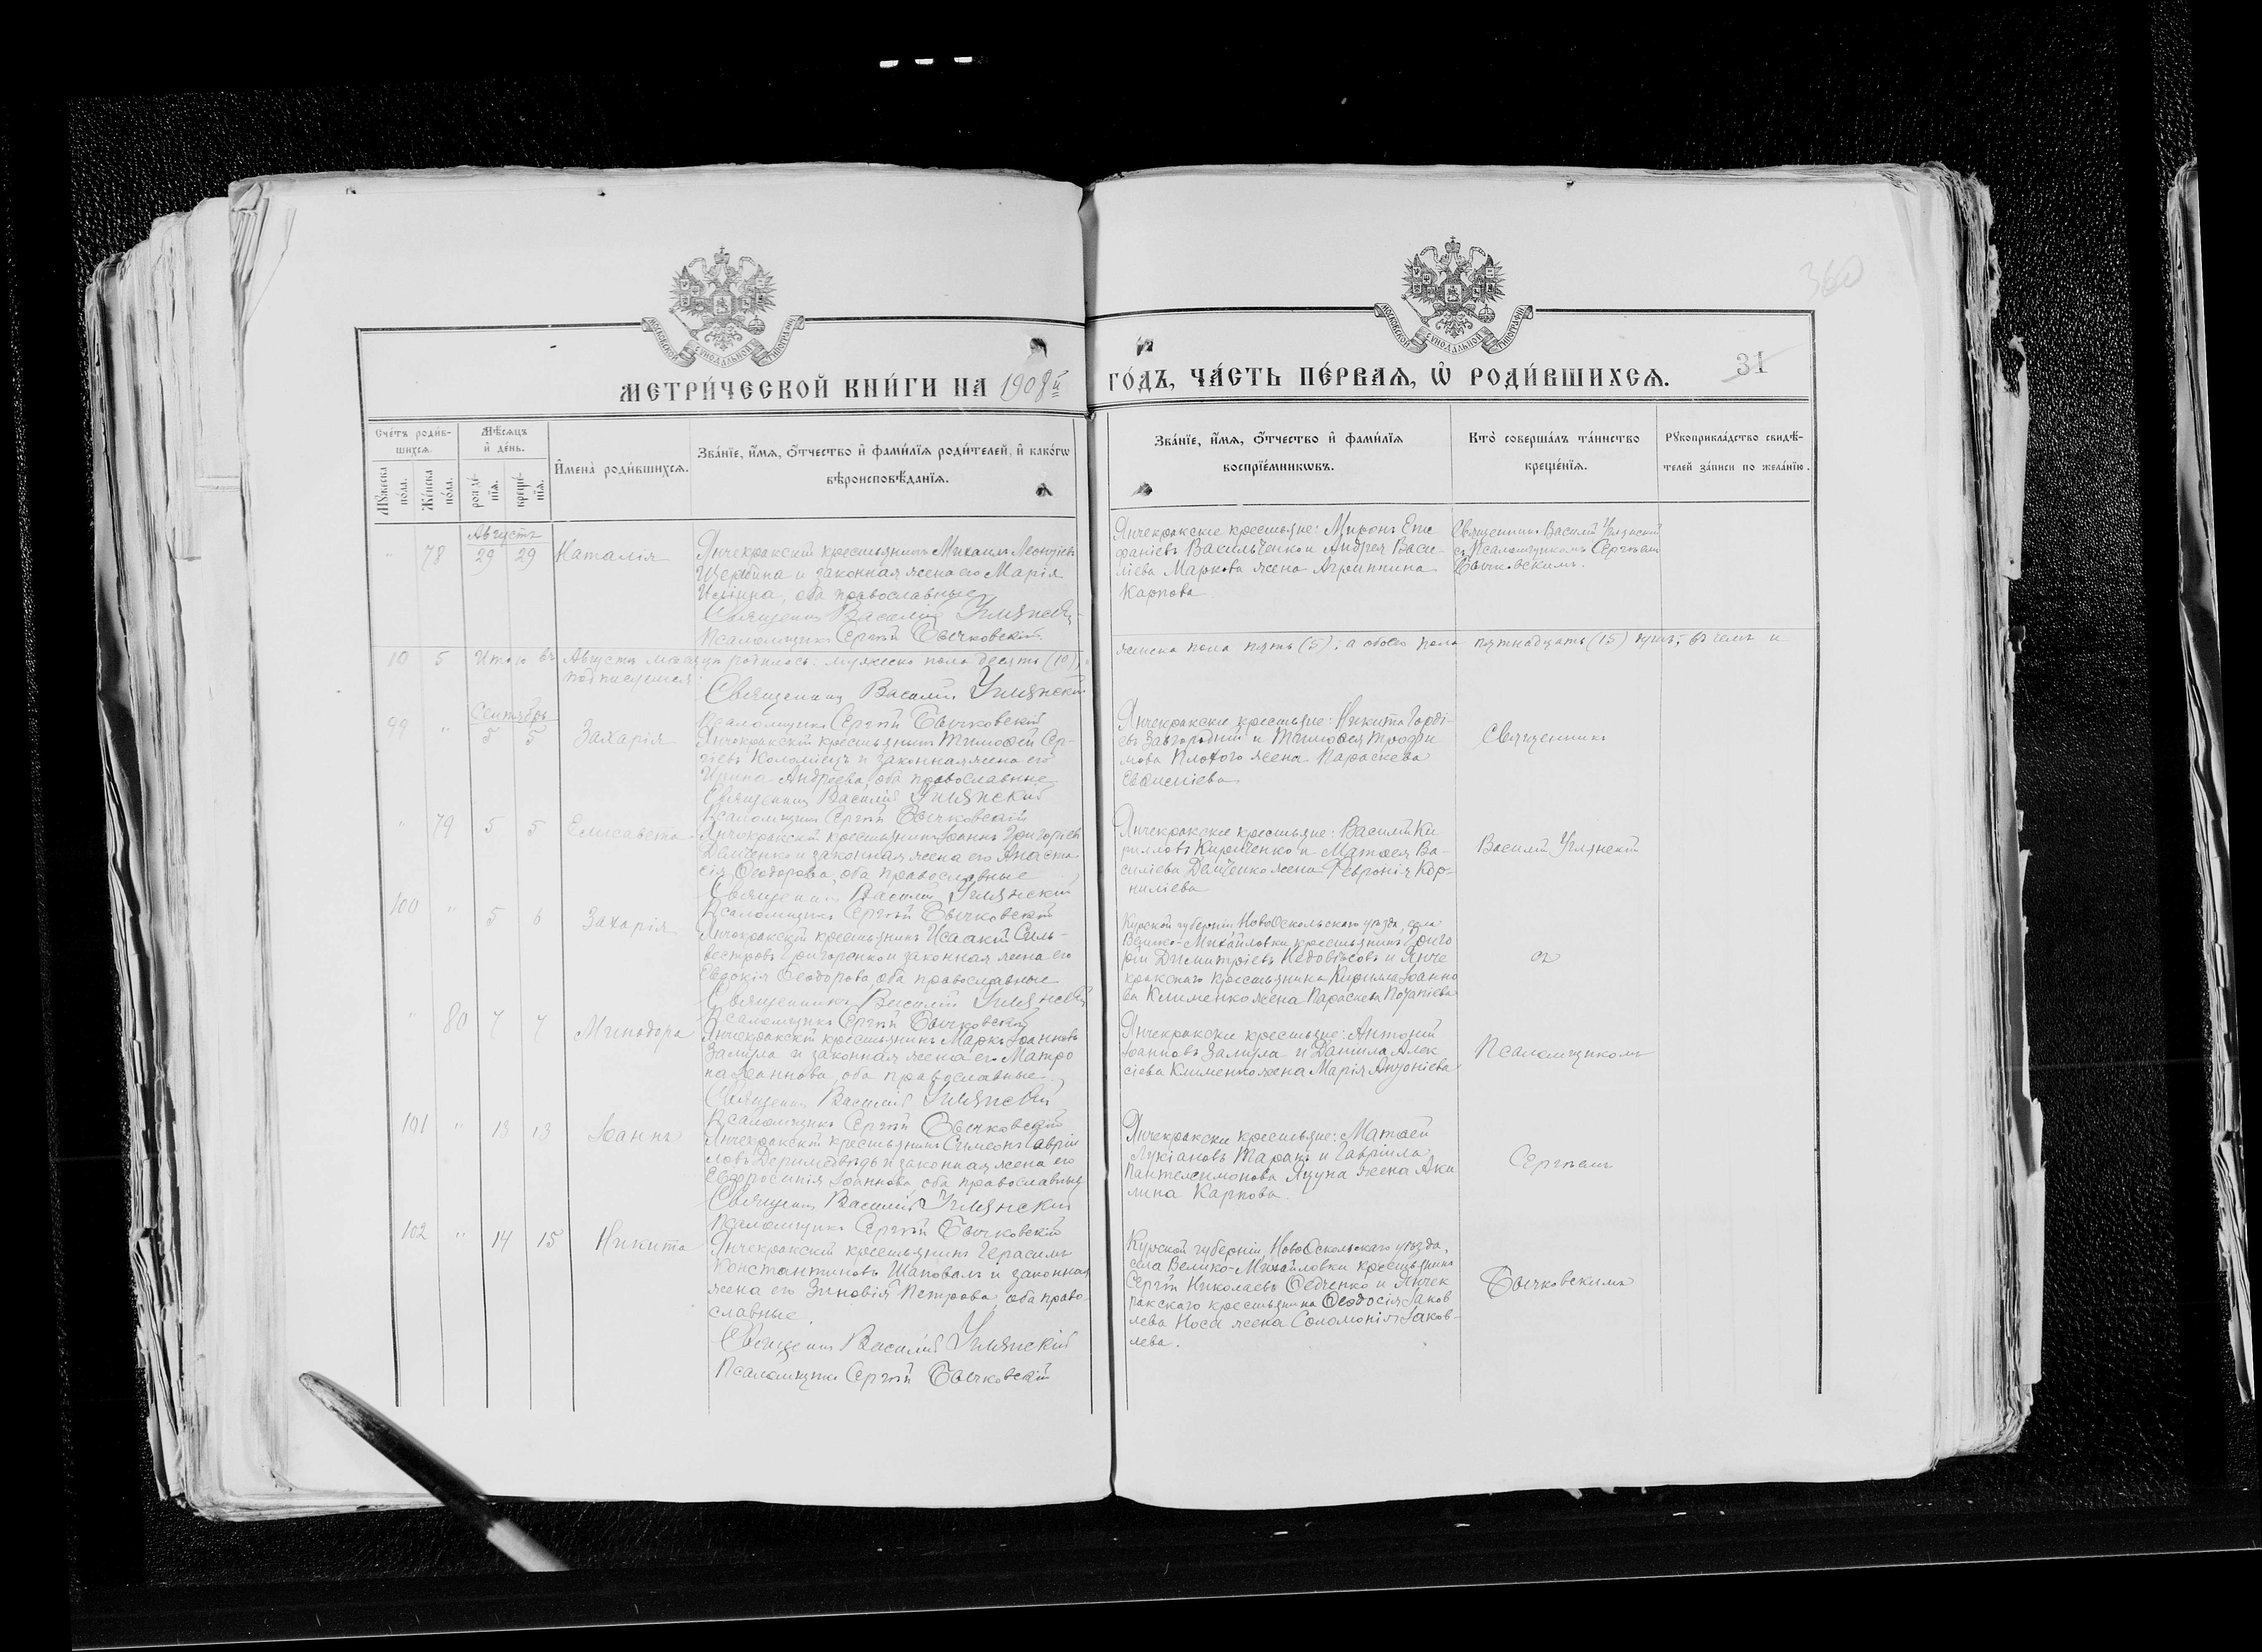 360
МОСКОВСКОЙ СѴНОДАЛЬНОЙ ТИПОГРАФІИ
МОСКОВСКОЙ СѴНОДАЛЬНОЙ ТИПОГРАФІИ
МЕТРИ́ЧЕСКОЙ КНИ́ГИ НА 1908й
ГО́ДЪ, ЧА́СТЬ ПЕ́РВАѦ, Ѡ҆ РОДИ́ВШИХСѦ.
31
Сче́тъ роди́в-
шихсѧ.
Мꙋ́жеска
пола.
Же́нска
по́ла.
Мѣ́сѧцъ
и҆ де́нь.
рожде́-
нїѧ.
креще́-
нїѧ.
И҆мена̀ роди́вшихсѧ.
Зва́нїе, и҆́мѧ, ѻ҆́тчество и҆ фами́лїѧ роди́телей, и҆ како́гѡ
вѣроисповѣ́данїѧ.
Зва́нїе, и҆́мѧ, ѻ҆́тчество и҆ фами́лїѧ
воспрїе́мникѡвъ.
Кто̀ соверша́лъ та́инство
креще́нїѧ.
Рꙋкоприкла́дство свидѣ́-
телей за́писи по жела́нїю.
Августъ
" 78 29 29 Наталія
Янчекракскій крестьянинъ Михаилъ Леонтіевъ
Щербина и законная жена его Марія
оба православные
Священникъ Василій Углянскій
Псаломщикъ Сергѣй Бычковскій
Янчекракскіе крестьяне: Миронъ Епи
фаніевъ Васильченко и Андрея Васи-
ліева Маркова жена Агриппина
Карпова
Священникъ Василій Углянскій
съ Псаломщикомъ Сергѣемъ
Бычковскимъ.
10 5 Итого въ Августѣ мѣсяцѣ родилось: мужеска пола десять (10),
женска пола пять (5); а обоего пола пятнадцать (15) душъ, въ чемъ и
подписуемся:
Священникъ Василій Углянскій
Псаломщикъ Сергѣй Бычковскій
Сентябрь
99 " 5 5 Захарія
Янчекракскій крестьянинъ Тимоѳей Сер-
гіевъ Коломіецъ и законная жена его
Ирина Андреева, оба православные
Священникъ Василій Углянскій
Псаломщикъ Сергѣй Бычковскій
Янчекракскіе крестьяне: Никита Горді-
евъ Завгородній и Тимоѳея Трофи
мова Плохого жена Параскева
Евѳиміева
Священникъ
" 79 5 5 Елисавета
Янчекракскій крестьянинъ Іоаннъ Григоріевъ
Демченко и законная жена его Анаста
сія Ѳеодорова, оба православные
Священникъ Василій Углянскій
Псаломщикъ Сергѣй Бычковскій
Янчекракскіе крестьяне: Василій Ки
рилловъ Кириченко и Матѳея Ва-
силіева Демченко жена Февронія Кор-
ниліева
Василій Углянскій
100 " 5 6 Захарія
Янчекракскій крестьянинъ Исаакій Силь-
вестровъ Григоренко и законная жена его
Евдокія Ѳеодорова, оба православные
Священникъ Василій Углянскій
Псаломщикъ Сергѣй Бычковскій
Курской губерніи НовоОскольскаго уѣзда, села
Велико-Михайловки крестьянинъ Григо
рій Димитріевъ и Янче
кракскаго крестьянина Кирилла Іоанно
ва Клименко жена Параскева Потапіева
съ
" 80 7 7 Минодора
Янчекракскій крестьянинъ Маркъ Іоанновъ
Замула и законная жена его Матро
на Іоаннова, оба православные
Священникъ Василій Углянскій
Псаломщикъ Сергѣй Бычковскій
Янчекракскіе крестьяне: Антоній
Іоанновъ Замула и Даніила Алек
сіева Клименко жена Марія Антоніева
Псаломщикомъ
101 " 13 13 Іоаннъ
Янчекракскій крестьянинъ Симеонъ Гавріи
ловъ и законная жена его
Евфросинія Іоаннова, оба православные
Священникъ Василій Углянскій
Псаломщикъ Сергѣй Бычковскій
Янчекракскіе крестьяне: Матѳей
Лукіановъ Таранъ и Гавріила
Пантелеимонова Яцуна жена Аки
лина Карпова.
Сергѣемъ
102 " 14 15 Никита
Янчекракскій крестьянинъ Герасимъ
Константиновъ Шаповалъ и законная
жена его Зиновія Петрова, оба право-
славные
Священникъ Василій Углянскій
Псаломщикъ Сергѣй Бычковскій
Курской губерніи, НовоОскольскаго уѣзда,
села Велико-Михайловки крестьянинъ
Сергѣй Николаевъ Ѳедченко и Янчек
ракскаго крестьянина Ѳеодосія Іаков
лева Носа жена Соломонія Іаков-
лева.
Бычковскимъ